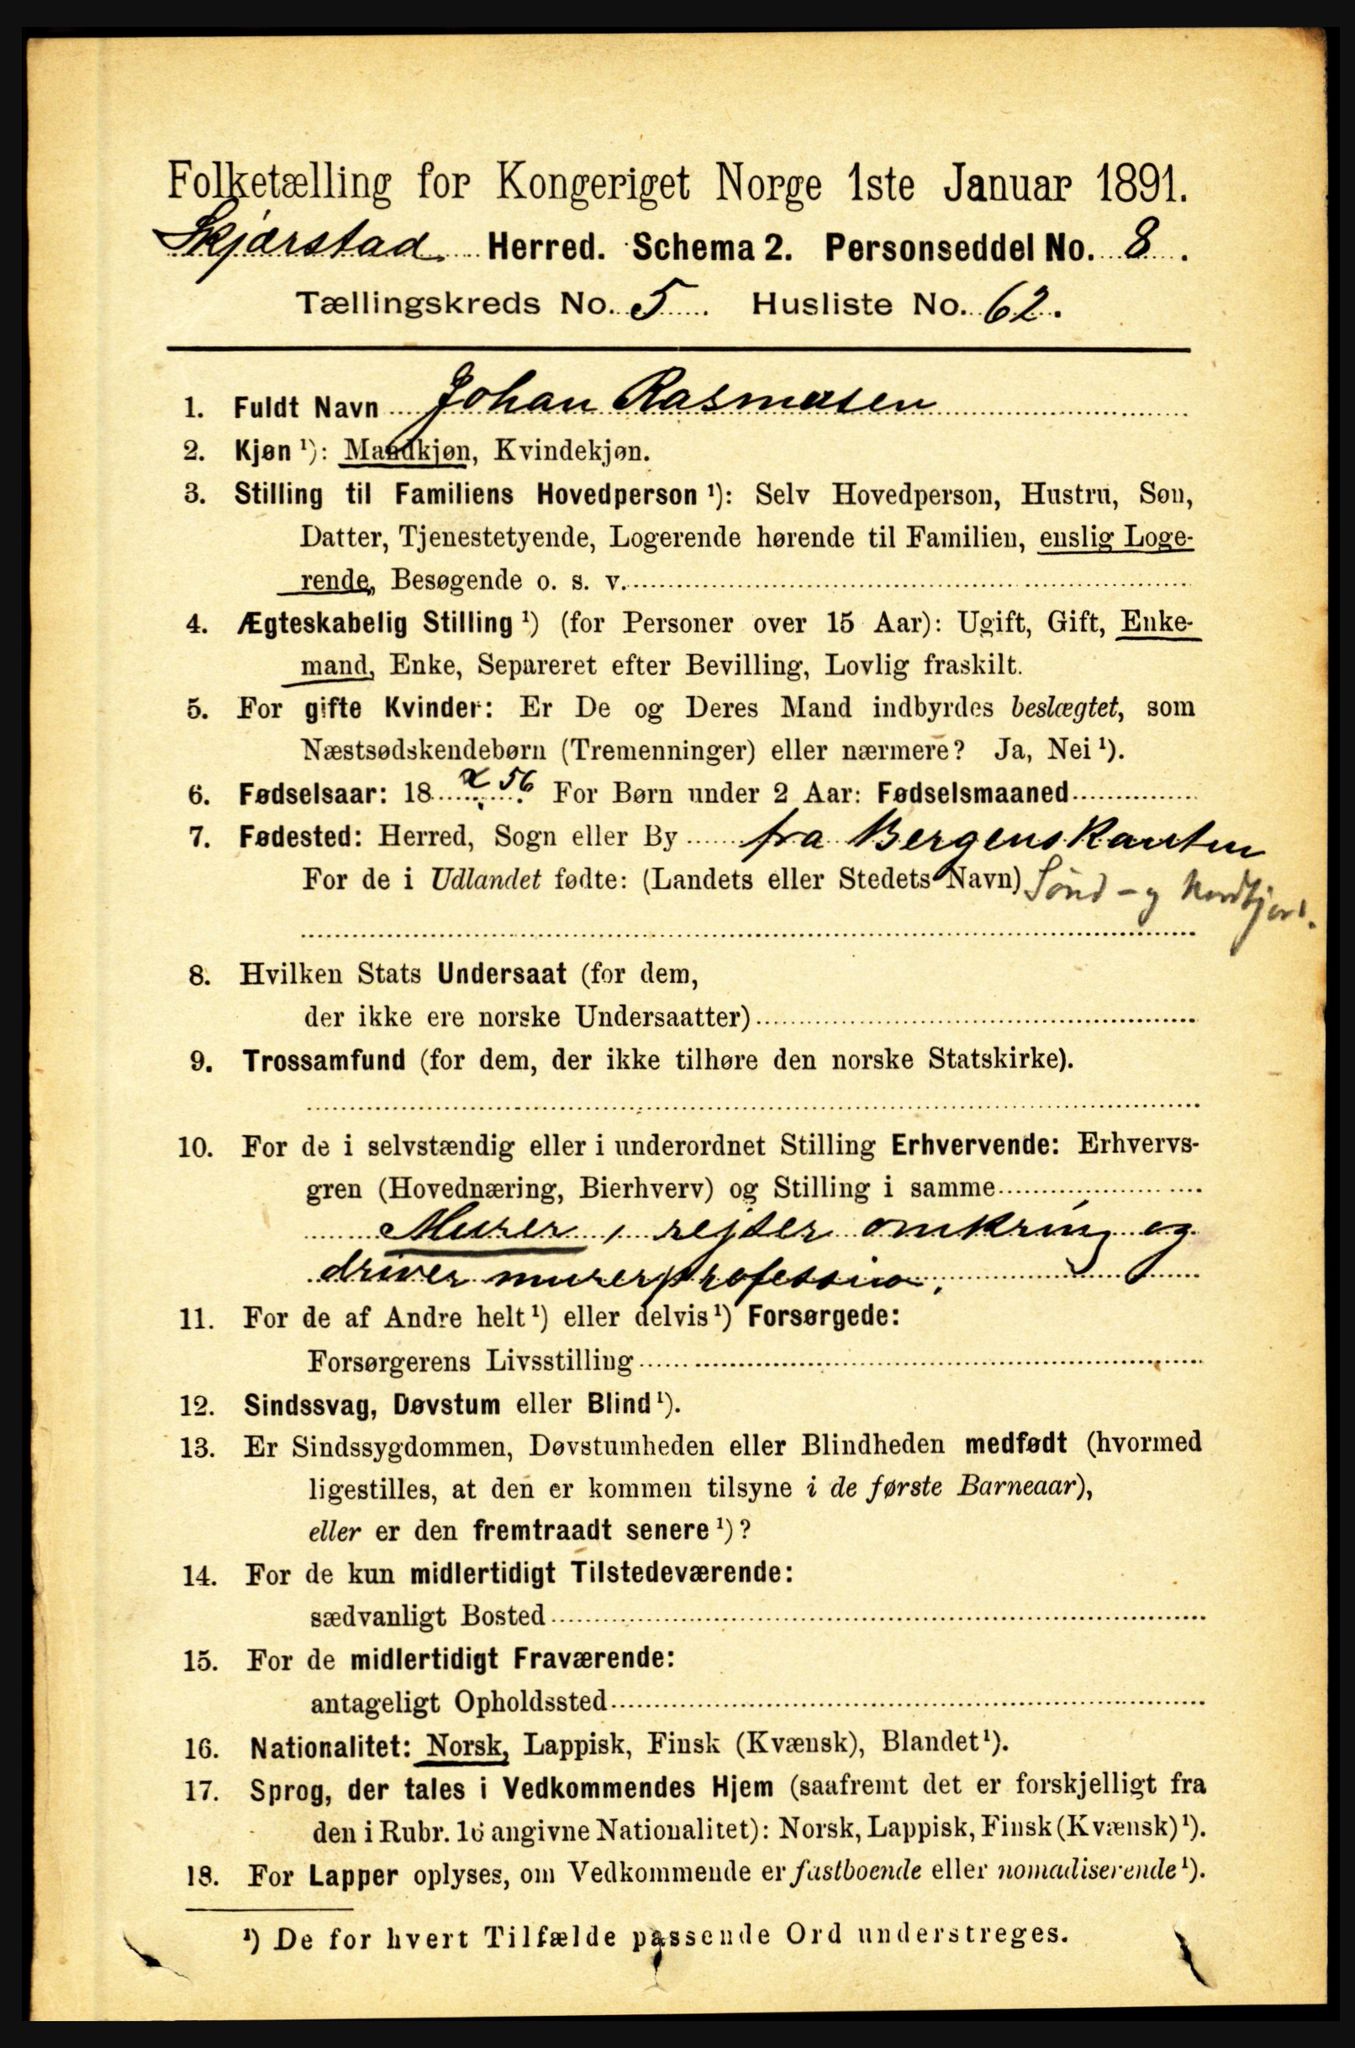 Folketælling for Kongeriget Norge 1ste Januar 1891.
Skjærstad Herred. Schema 2. Personseddel No. 8.
Tællingskreds No. 5 Husliste No. 62.
1. Fuldt Navn Johan Rasmusen
2. Kjøn ¹): Mandkjøn, Kvindekjøn.
3. Stilling til Familiens Hovedperson ¹): Selv Hovedperson, Hustru, Søn,
Datter, Tjenestetyende, Logerende hørende til Familien, enslig Loge-
rende, Besøgende o. s. v.
4. Ægteskabelig Stilling ¹) (for Personer over 15 Aar): Ugift, Gift, Enke-
mand, Enke, Separeret efter Bevilling, Lovlig fraskilt.
5. For gifte Kvinder: Er De og Deres Mand indbyrdes beslægtet, som
Næstsødskendebørn (Tremenninger) eller nærmere? Ja, Nei ¹).
6. Fødselsaar: 18 56 For Børn under 2 Aar: Fødselsmaaned
7. Fødested: Herred, Sogn eller By fra Bergenskanten
For de i Udlandet fødte: (Landets eller Stedets Navn) Sønd- og Nordfjord.
8. Hvilken Stats Undersaat (for dem,
der ikke ere norske Undersaatter)
9. Trossamfund (for dem, der ikke tilhøre den norske Statskirke).
10. For de i selvstændig eller i underordnet Stilling Erhvervende: Erhvervs-
gren (Hovednæring, Bierhverv) og Stilling i samme
Murer, rejser omkring og
driver murerprofession.
11. For de af Andre helt ¹) eller delvis ¹) Forsørgede:
Forsørgerens Livsstilling
12. Sindssvag, Døvstum eller Blind ¹).
13. Er Sindssygdommen, Døvstumheden eller Blindheden medfødt (hvormed
ligestilles, at den er kommen tilsyne i de første Barneaar),
eller er den fremtraadt senere ¹)?
14. For de kun midlertidigt Tilstedeværende:
sædvanligt Bosted
15. For de midlertidigt Fraværende:
antageligt Opholdssted
16. Nationalitet: Norsk, Lappisk, Finsk (Kvænsk), Blandet ¹).
17. Sprog, der tales i Vedkommendes Hjem (saafremt det er forskjelligt fra
den i Rubr. 16 angivne Nationalitet): Norsk, Lappisk, Finsk (Kvænsk) ¹).
18. For Lapper oplyses, om Vedkommende er fastboende eller nomadiserende ¹).
¹) De for hvert Tilfælde passende Ord understreges.